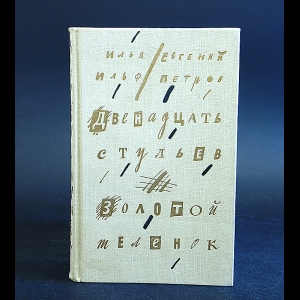 Илья Евгений
Ильф Петров
Двенадцать
стульев
Золотой
теленок